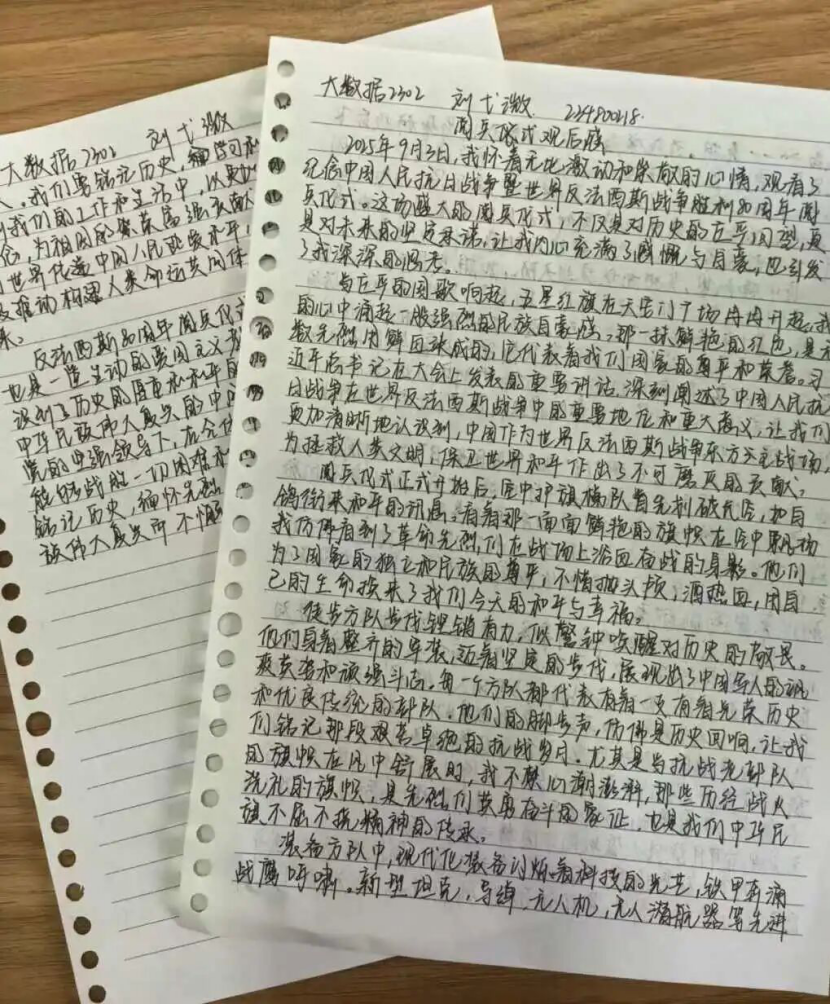 大数据2302 刘弋澂 234800218.
阅兵仪式观后感
2025年9月3日,我怀着无比激动和崇敬的心情,观看了
纪念中国人民抗日战争暨世界反法西斯战争胜利80周年阅
兵仪式。这场盛大的阅兵仪式,不仅是对历史的庄严回望,更
是对未来的坚定承诺,让我内心充满了感慨与自豪,也引发
了我深深的思考。
当庄严的国歌响起,五星红旗在天安门广场冉冉升起,我
的心中涌起一股强烈的民族自豪感。那一抹鲜艳的红色,是无
数先烈用鲜血染成的,它代表着我们国家的尊严和荣誉。习
近平总书记在大会上发表的重要讲话,深刻阐述了中国人民抗
日战争在世界反法西斯战争中的重要地位和重大意义,让我们
更加清晰地认识到,中国作为世界反法西斯战争东方主战场,
为拯救人类文明,保卫世界和平作出了不可磨灭的贡献。
阅兵仪式正式开始后,空中护旗梯队首先划破长空,和白
鸽衔来和平的讯息。看着那一面面鲜艳的旗帜在空中飘扬
我仿佛看到了革命先烈们在战场上浴血奋战的身影。他们
为了国家的独立和民族的尊严,不惜抛头颅,洒热血,用自
己的生命换来了我们今天的和平与幸福。
徒步方队步伐铿锵有力,似警钟唤醒对历史的敬畏。
他们身着整齐的军装,迈着坚定的步伐,展现出了中国军人的飒
爽英姿和顽强斗志。每一个方队都代表有着一支有着光荣历史
和优良传统的部队。他们的脚步声,仿佛是历史回响,让我
们铭记那段艰苦卓绝的抗战岁月。尤其是当抗战老部队
的旗帜在风中舒展时,我不禁心潮澎湃,那些历经战火
洗礼的旗帜,是先烈们英勇奋斗的象征,也是我们中华民
族不屈不挠精神的传承。
装备方队中,现代化装备闪烁着科技的光芒,铁甲奔涌
战鹰呼啸。新型坦克,导弹,无人机,无人潜航器等先进
大数据2302 刘弋澂
。我们要铭记历史,缅怀先
到我们的工作和生活中,以更加
念,为祖国的繁荣富强贡献
世界代造中国人民热爱和平,
推动构建人类命运共同体
来。
反法西斯80周年阅兵仪式
也是一堂生动的爱国主义
识到了历史的厚重和和平的
中华民族伟大复兴的中
党的坚强领导下,在全体
能够战胜一切困难和
铭记历史,缅怀先烈
族伟大复兴而不懈